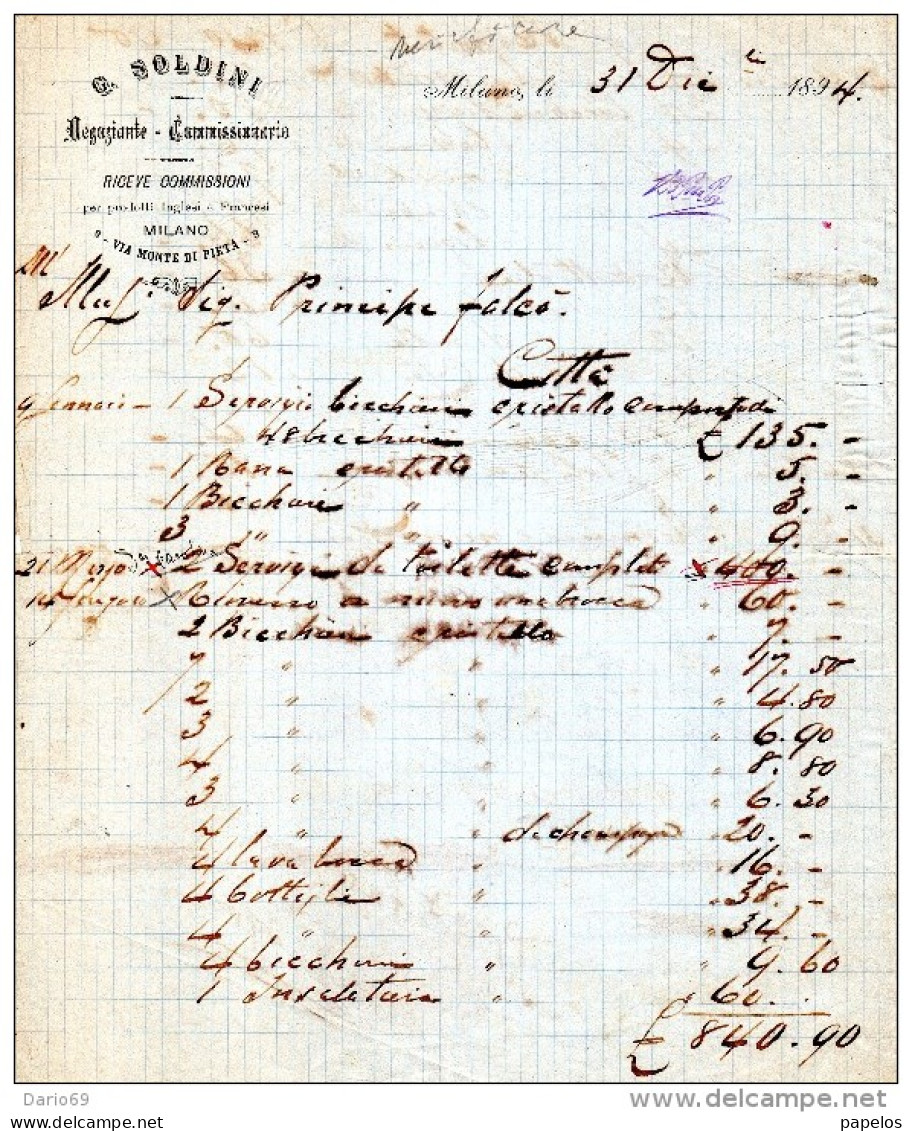 verificare
G. SOLDINI
Negoziante - Commissionario
RICEVE COMMISSIONI
per prodotti Inglesi e Francesi
MILANO
9 - VIA MONTE DI PIETÀ - 9
Milano, li 31 Dice 1894.
Ill. Sig. Principe Falcò.
Città
9 Gennaio - 1 Servizio bicchieri cristallo composto di
48 bicchieri £ 135. -
- 1 Rana cristallo " 5. -
- 1 Bicchiere " " 3. -
3 " " 9. -
21 Marzo 2 Servizi da toilette completi 400. -
14 Giugno Rimesso a nuovo una brocca " 60. -
2 Bicchieri cristallo " 7. -
7 " " " 17. 50
2 " " " 4. 80
3 " " " 6. 90
4 " " " 8. 80
3 " " " 6. 30
4 " " da champagne " 20. -
4 lava bocca " " 16. -
4 bottiglie " " 38. -
4 " " " 34. -
4 bicchieri " " 9. 60
1 Insalatiera " " 60. .
£ 840. 90
Dario69
delcampe.net
papelos